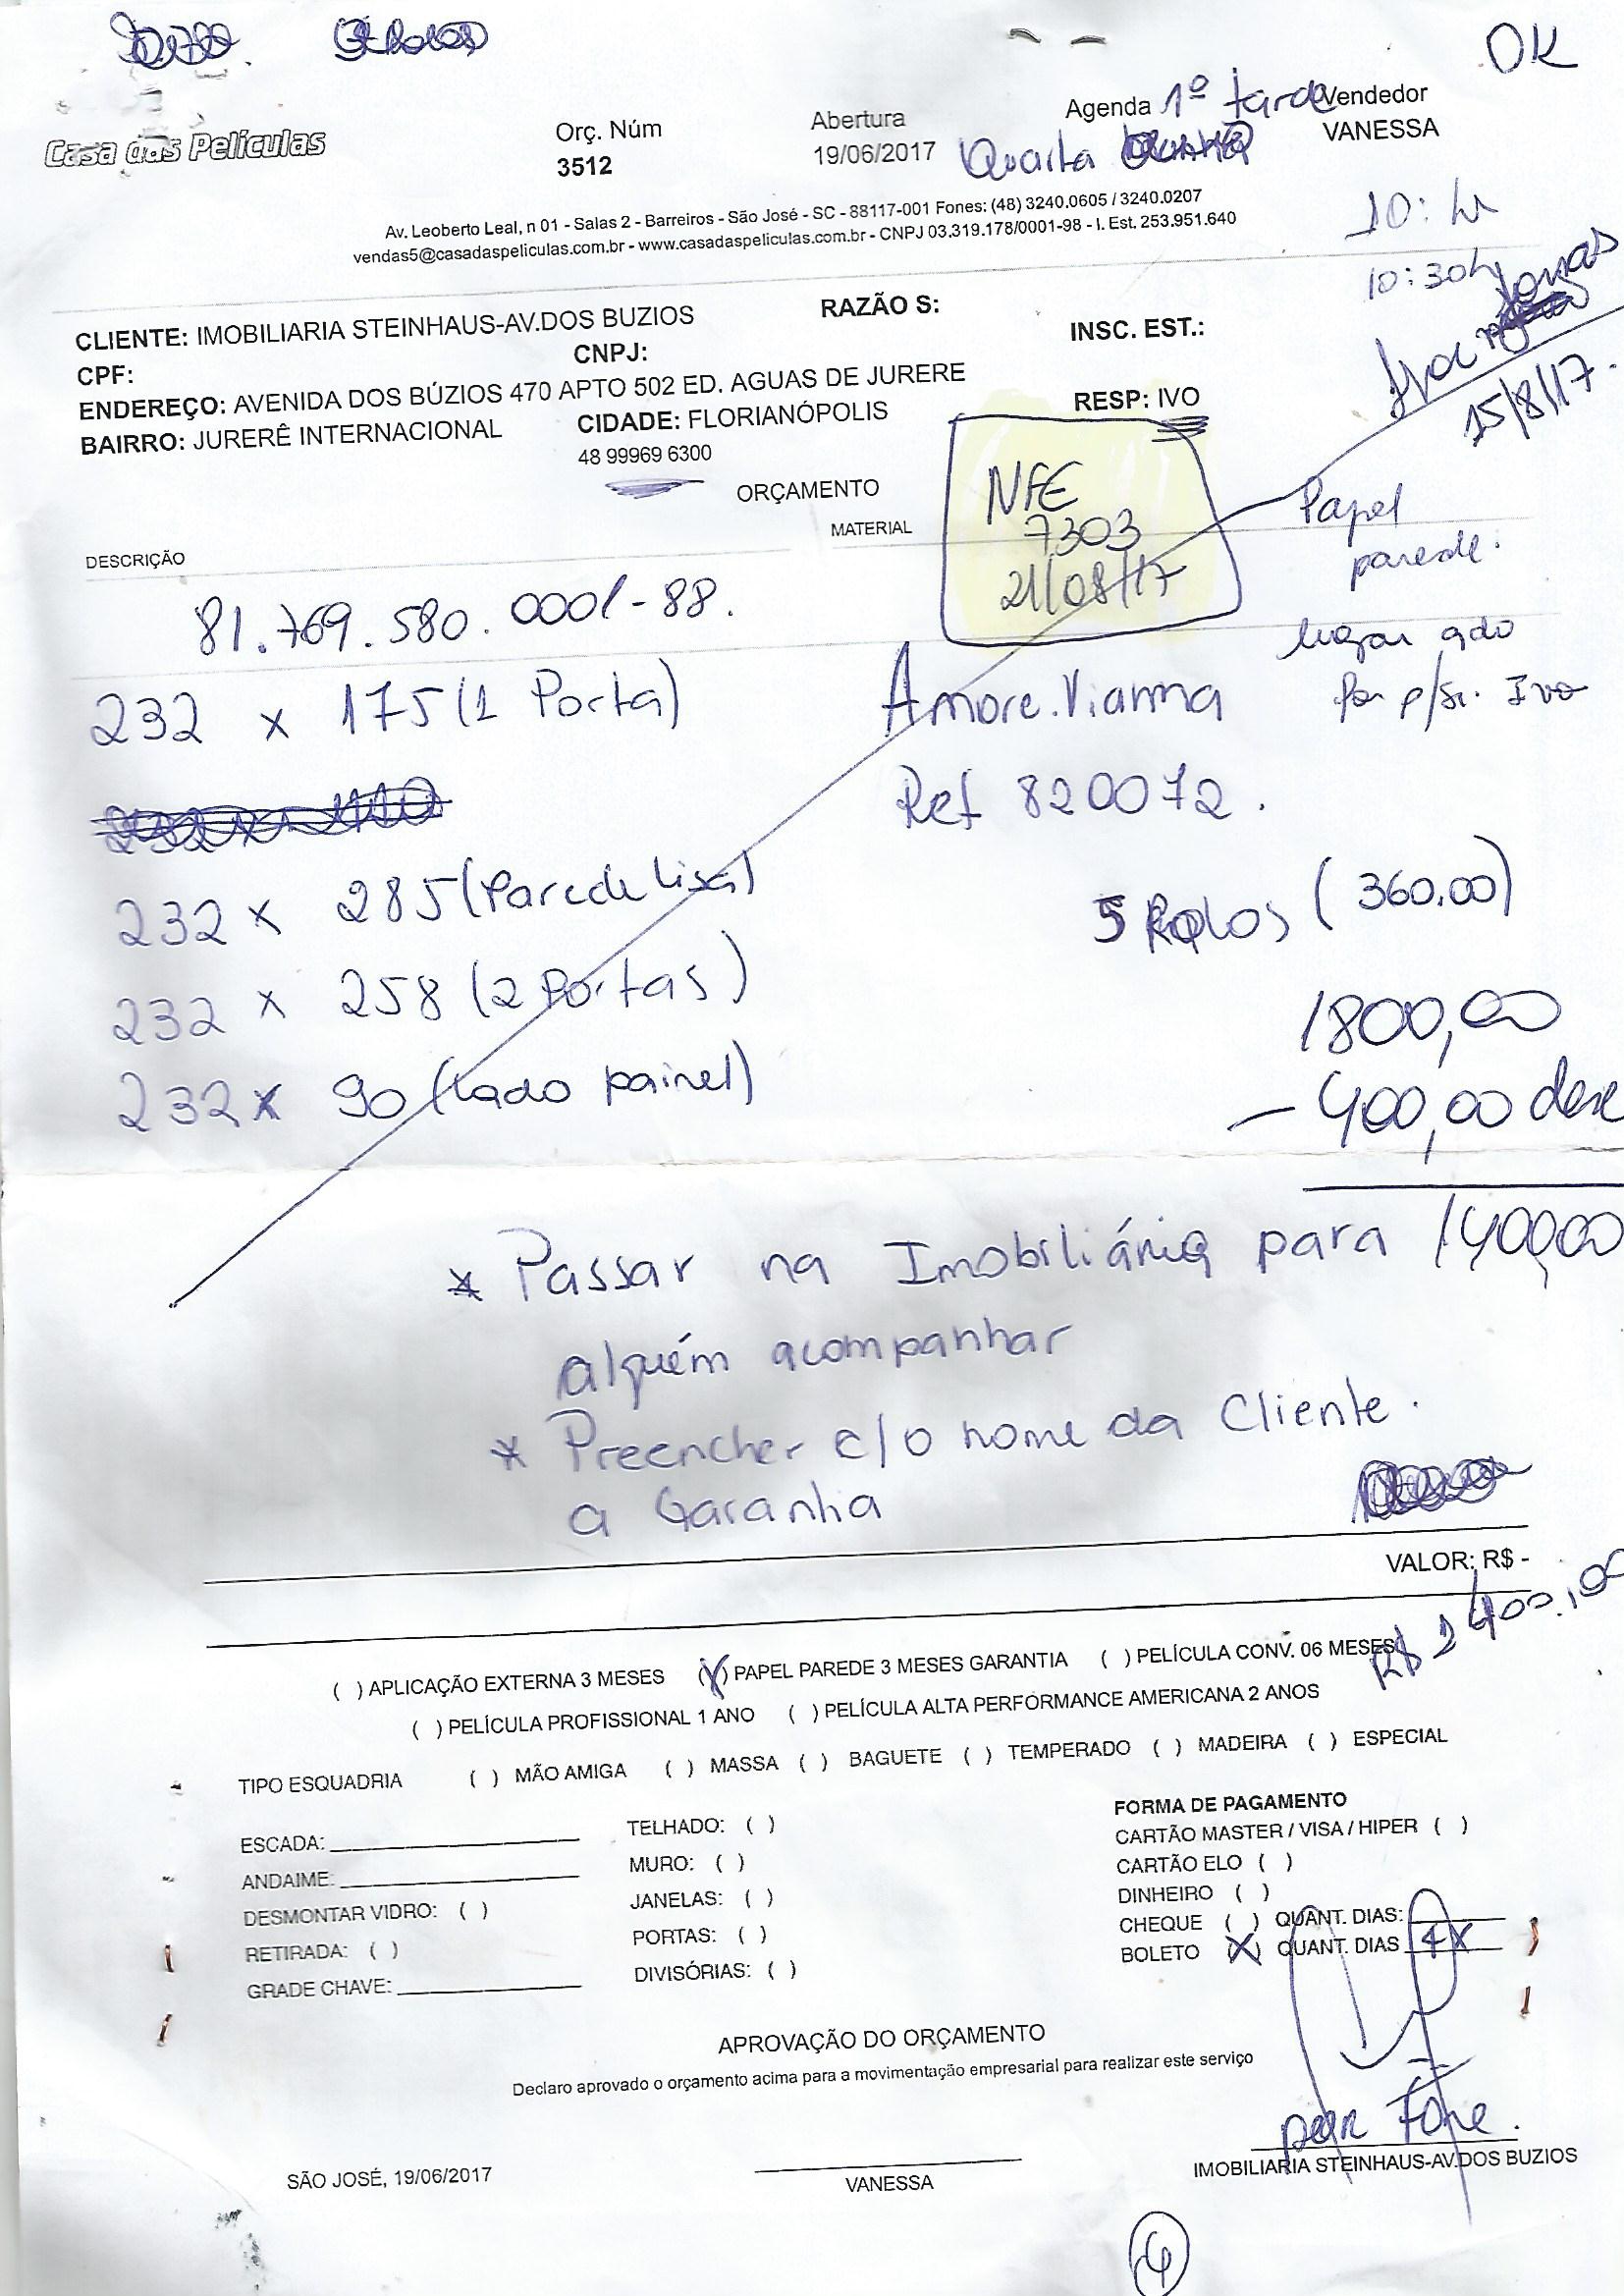 OK
Casa das Películas
Orç. Núm
3512
Abertura
19/06/2017
Agenda 1º tarde
Quarta
Vendedor
VANESSA
Av. Leoberto Leal, n 01 - Salas 2 - Barreiros - São José - SC - 88117-001 Fones: (48) 3240.0605 / 3240.0207
vendas5@casadaspeliculas.com.br - www.casadaspeliculas.com.br - CNPJ 03.319.178/0001-98 - I. Est. 253.951.640
10: h
10:30h
Jonas
15/8/17.
CLIENTE: IMOBILIARIA STEINHAUS-AV.DOS BUZIOS
RAZÃO S:
CPF:
CNPJ:
INSC. EST.:
ENDEREÇO: AVENIDA DOS BÚZIOS 470 APTO 502 ED. AGUAS DE JURERE
BAIRRO: JURERÊ INTERNACIONAL
CIDADE: FLORIANÓPOLIS
RESP: IVO
48 99969 6300
ORÇAMENTO
DESCRIÇÃO
MATERIAL
NFE
7303
21/08/17
Papel
parede.
por p/Sr. Ivo
81.769.580.0001-88.
232 x 175 (1 Porta)
Amore.Vianna
Ref 820072.
232 x 285 (Parede Lisa)
5 Rolos (360.00)
232 x 258 (2 Portas)
1800,00
232 x 90 (lado painel)
- 400,00 desc
1400,00
* Passar na Imobiliária para
alguém acompanhar
* Preencher c/o nome da Cliente.
a Garanhia
VALOR: R$ -
R$ 1400,00
( ) APLICAÇÃO EXTERNA 3 MESES (X) PAPEL PAREDE 3 MESES GARANTIA ( ) PELÍCULA CONV. 06 MESES
( ) PELÍCULA PROFISSIONAL 1 ANO ( ) PELÍCULA ALTA PERFORMANCE AMERICANA 2 ANOS
TIPO ESQUADRIA ( ) MÃO AMIGA ( ) MASSA ( ) BAGUETE ( ) TEMPERADO ( ) MADEIRA ( ) ESPECIAL
ESCADA:
ANDAIME:
DESMONTAR VIDRO: ( )
RETIRADA: ( )
GRADE CHAVE:
TELHADO: ( )
MURO: ( )
JANELAS: ( )
PORTAS: ( )
DIVISÓRIAS: ( )
FORMA DE PAGAMENTO
CARTÃO MASTER / VISA / HIPER ( )
CARTÃO ELO ( )
DINHEIRO ( )
CHEQUE ( ) QUANT. DIAS:
BOLETO (X) QUANT. DIAS 4x
APROVAÇÃO DO ORÇAMENTO
Declaro aprovado o orçamento acima para a movimentação empresarial para realizar este serviço
por Fone.
SÃO JOSÉ, 19/06/2017
VANESSA
IMOBILIARIA STEINHAUS-AV.DOS BUZIOS